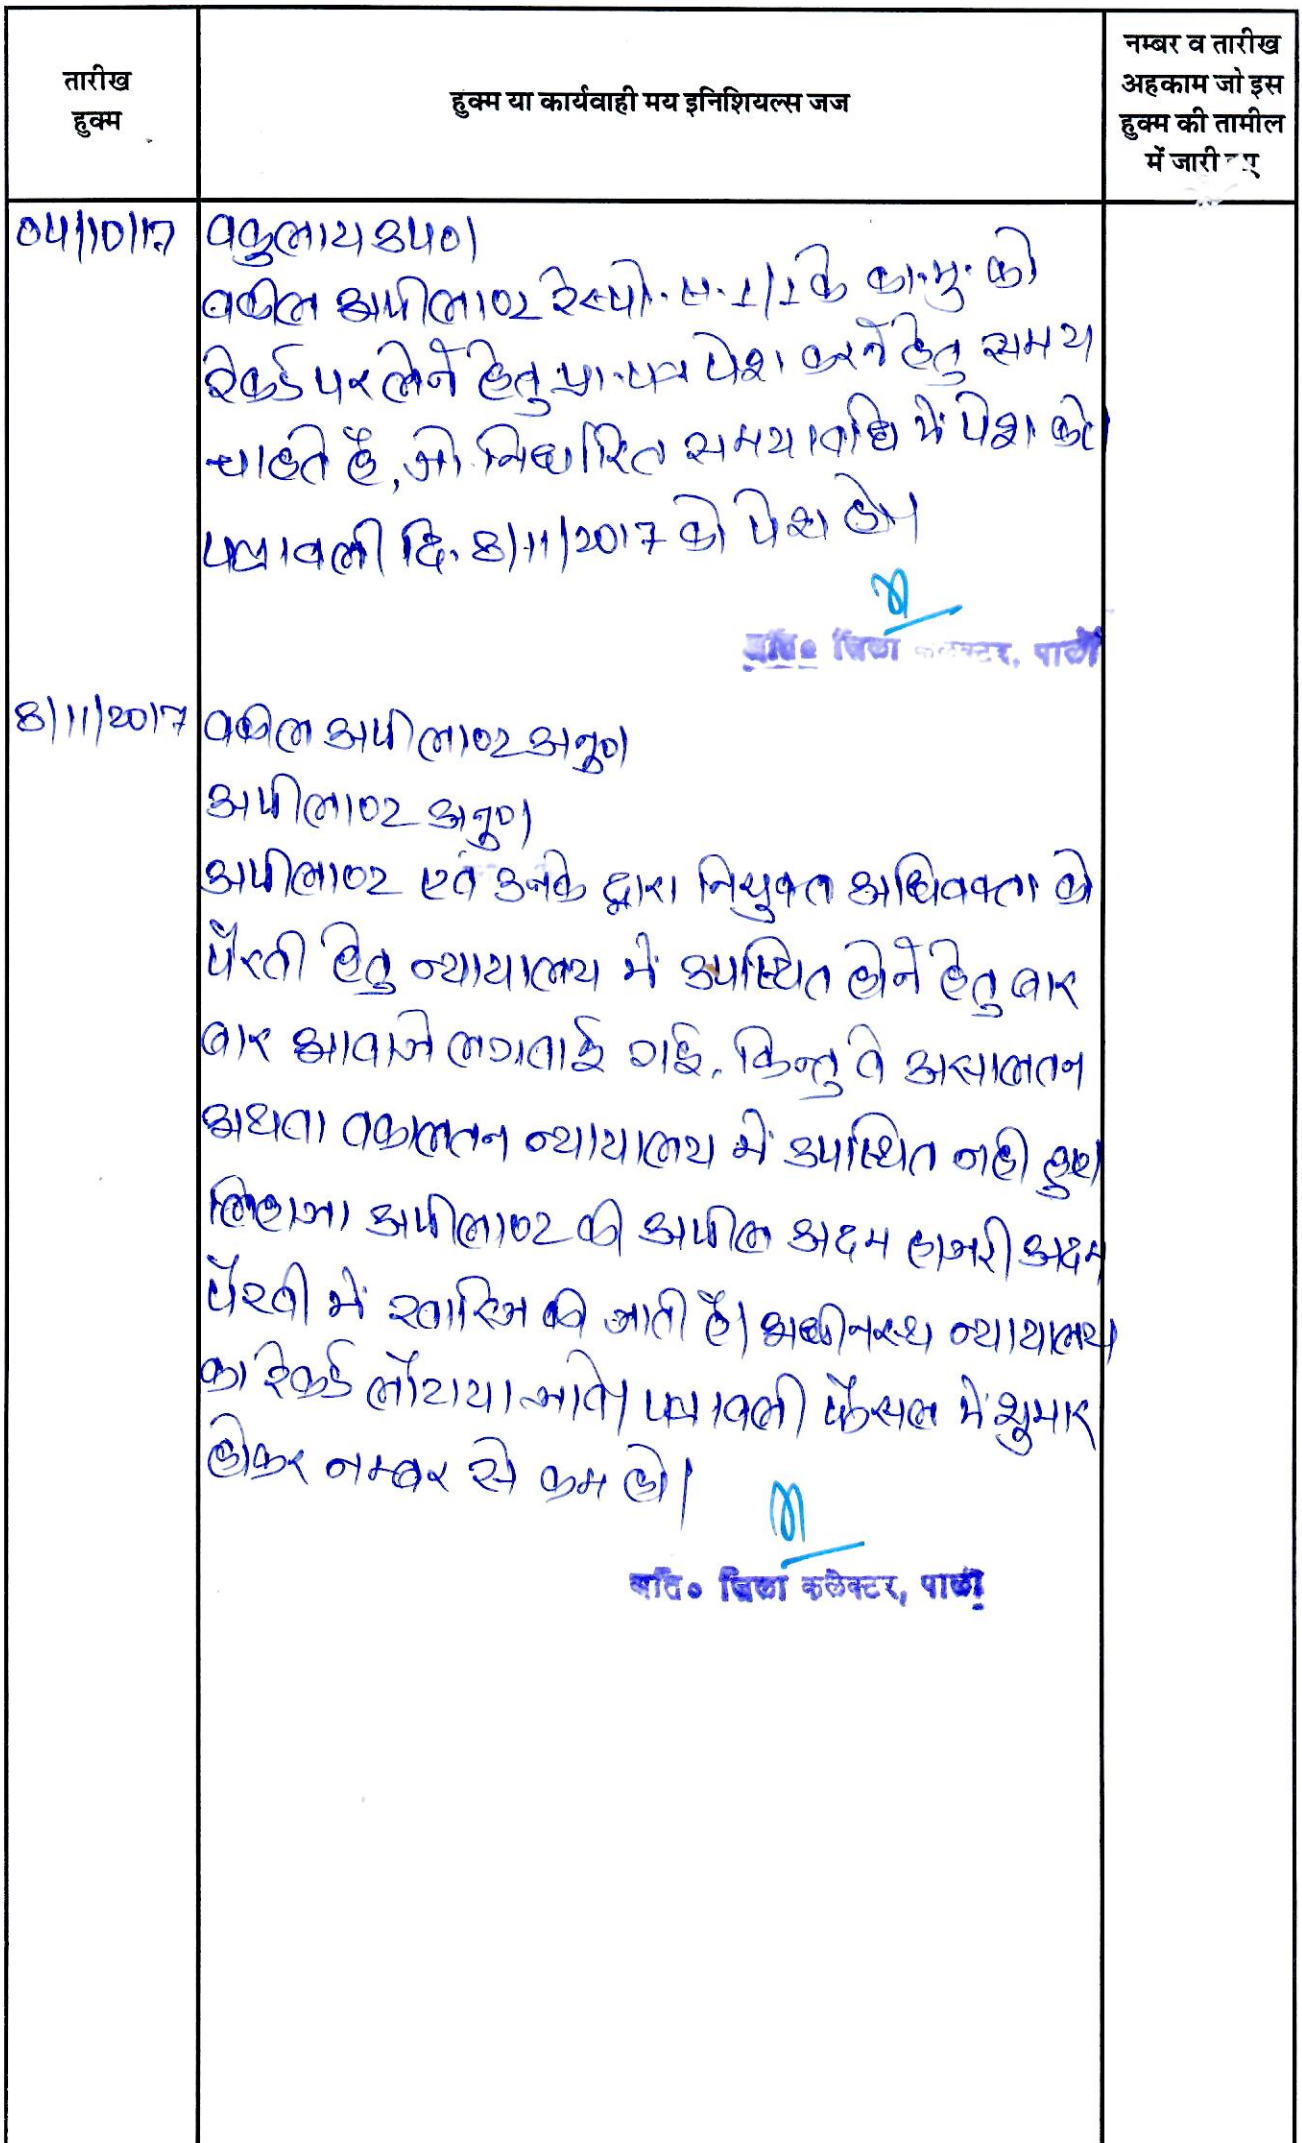 तारीख
हुक्म
हुक्म या कार्यवाही मय इनिशियल्स जज
नम्बर व तारीख
अहकाम जो इस
हुक्म की तामील
में जारी हुए
04/10/17
वकुलाय उप०।
वकील अपीलाण्ट रेस्पो. स. 1/1 के का.मु. को
रेकर्ड पर लेने हेतु प्रा.पत्र पेश करने हेतु समय
चाहते है, जो निर्धारित समयावधि में पेश करे।
पत्रावली दि. 8/11/2017 को पेश हो।
अति० जिला कलेक्टर, पाली
8/11/2017
वकील अपीलाण्ट अनु०।
अपीलाण्ट अनु०।
अपीलाण्ट एवं उनके द्वारा नियुक्त अधिवक्ता को
पैरवी हेतु न्यायालय में उपस्थित होने हेतु बार
बार आवाजे लगवाई गई, किन्तु वे असालतन
अथवा वकालतन न्यायालय में उपस्थित नही हुए।
लिहाजा अपीलाण्ट की अपील अदम हाजरी अदम
पैरवी में खारिज की जाती है। अधीनस्थ न्यायालय
का रेकर्ड लौटाया जावे। पत्रावली फैसल में शुमार
होकर नम्बर से कम हो।
अति० जिला कलेक्टर, पाली